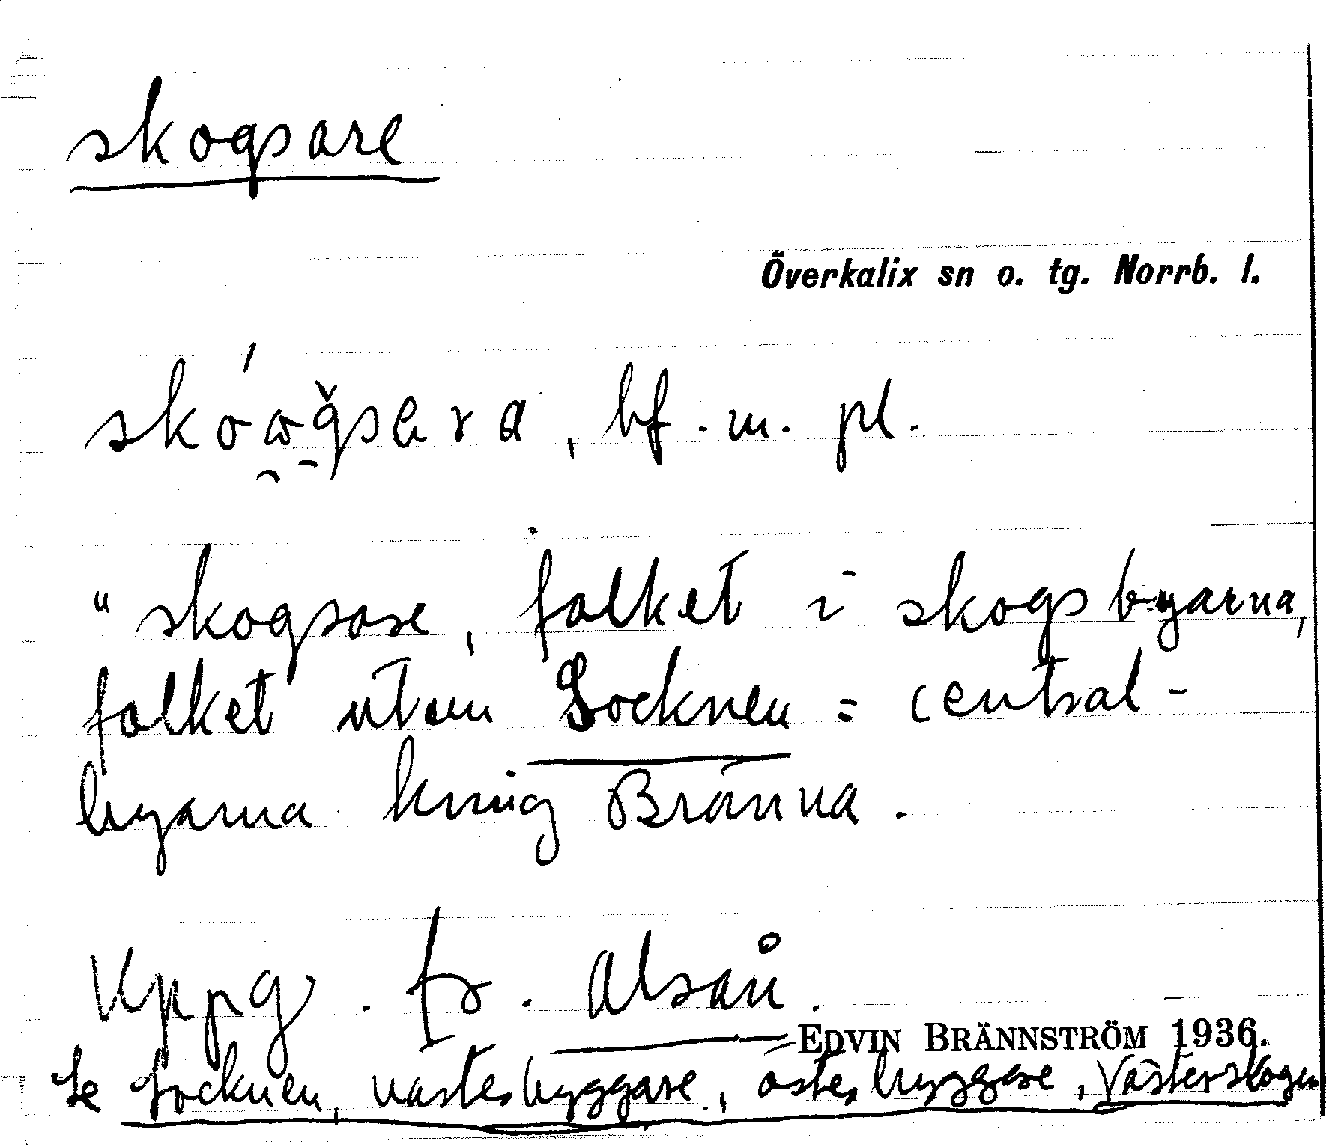 skogsare
Överkalix sn o. tg. Norrb. l.
bf. m. pl.
"skogsare, folket i skogsbyarna,
folket utom Socknen = central-
byarna kring Bränna.
Uppg. fr. Alsån.
EDVIN BRÄNNSTRÖM 1936.
Se Socknen, västerbyggare, österbyggare, Västerskogen